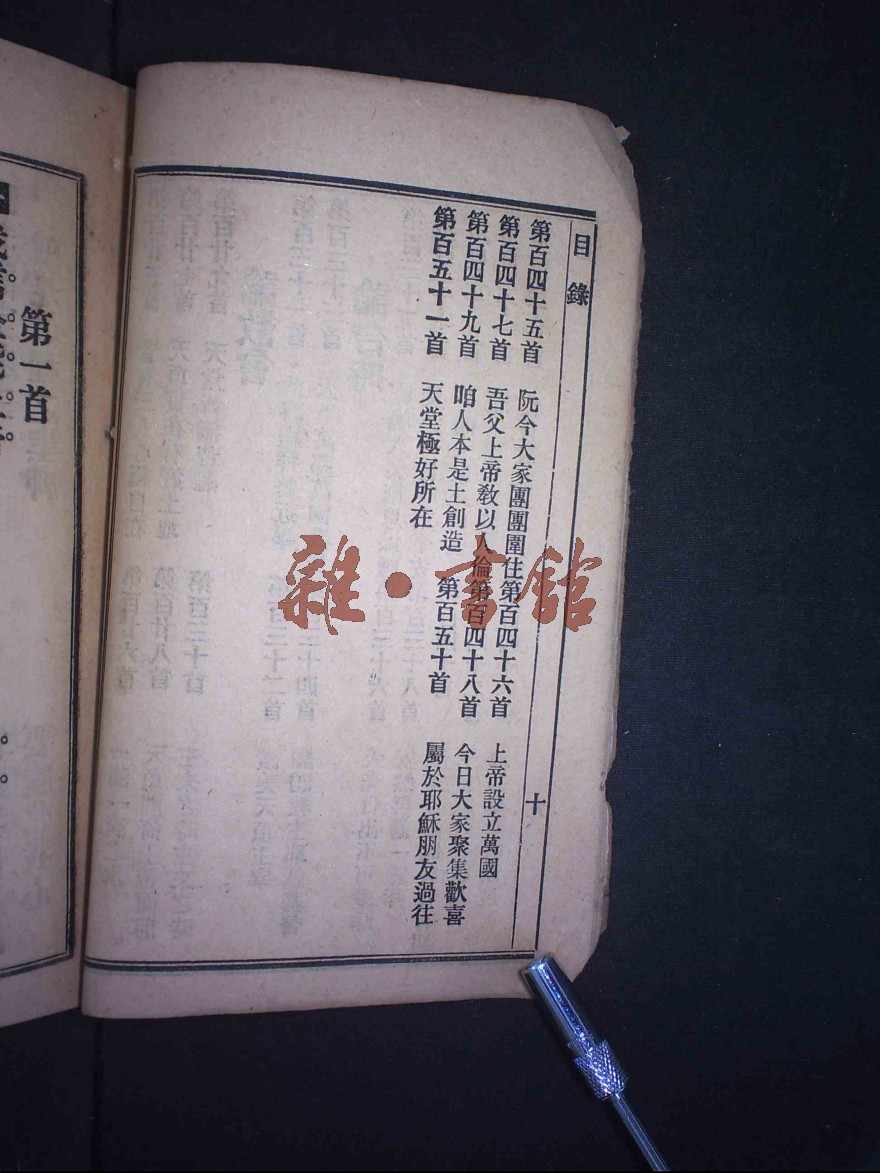 目錄
十
第百四十五首 阮今大家團團圍住 第百四十六首 上帝設立萬國
第百四十七首 吾父上帝敎以人倫 第百四十八首 今日大家聚集歡喜
第百四十九首 咱人本是土創造 第百五十首 屬於耶穌朋友過往
第百五十一首 天堂極好所在
第一首
雜·書館